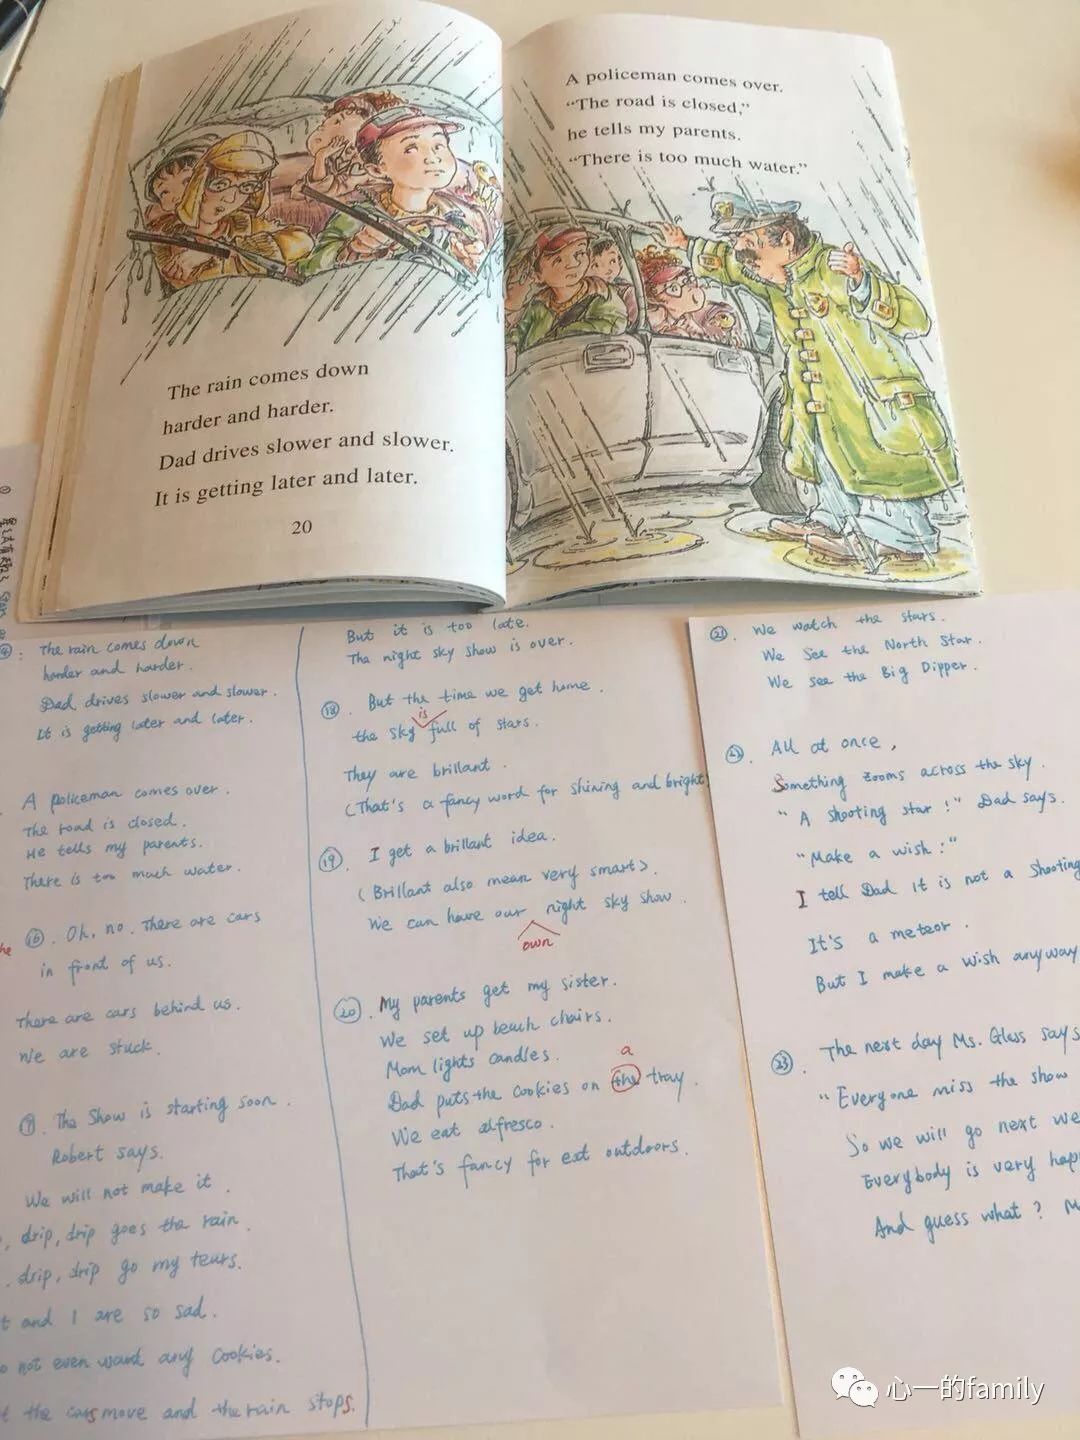 The rain comes down
harder and harder.
Dad drives slower and slower.
It is getting later and later.
20
A policeman comes over.
“The road is closed,”
he tells my parents.
“There is too much water.”
The rain comes down
harder and harder.
Dad drives slower and slower.
It is getting later and later.
A policeman comes over.
The road is closed.
He tells my parents.
There is too much water.
he
⑯. Oh, no. There are cars
in front of us.
There are cars behind us.
We are stuck.
The show is starting soon.
Robert says.
We will not make it.
drip, drip goes the rain.
drip, drip go my tears.
and I are so sad.
not even want any cookies.
the cars move and the rain stops.
But it is too late.
The night sky show is over.
⑱. But the time we get home.
is
the sky full of stars.
They are brillant.
(That's a fancy word for shining and bright
⑲. I get a brillant idea.
(Brillant also mean very smart).
We can have our night sky show.
own
⑳. My parents get my sister.
We set up beach chairs.
Mom lights candles.
a
Dad puts the cookies on the tray.
We eat alfresco.
That's fancy for eat outdoors.
㉑. We watch the stars.
We see the North Star.
We see the Big Dipper.
All at once,
Something zooms across the sky.
"A shooting star!" Dad says.
"Make a wish!"
I tell Dad it is not a shooting
It's a meteor.
But I make a wish anyway
㉓. The next day Ms. Glass says
"Everyone miss the show
So we will go next we
Everybody is very happ
And guess what? M
心一的family